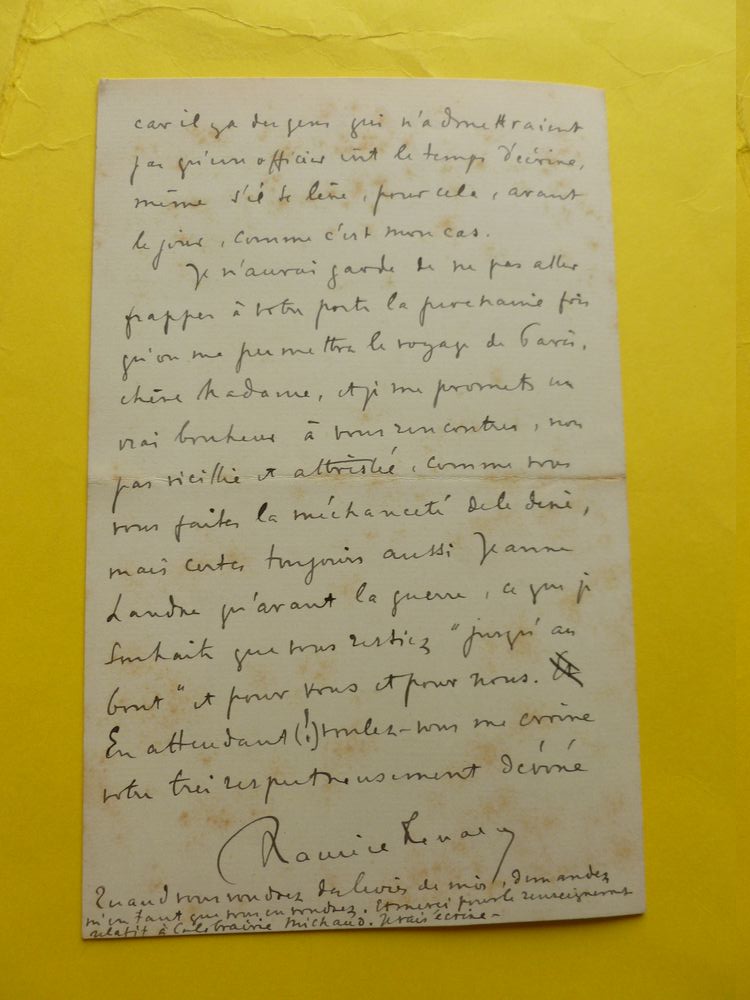 car il y a des gens qui n'admettraient
pas qu'un officier eût le temps d'écrire,
même s'il se lève, pour cela, avant
le jour, comme c'est mon cas.
Je n'aurai garde de ne pas aller
frapper à votre porte la prochaine fois
qu'on me permettra le voyage de Paris,
chère Madame, et je me promets un
vrai bonheur à vous rencontrer, non
pas vieillie et attristée, comme vous
vous faites la méchanceté de le dire,
mais certes toujours aussi Jeanne
Landre qu'avant la guerre, ce que je
souhaite que vous restiez "jusqu'au
bout" et pour vous et pour nous.
En attendant (!) voulez-vous me croire
votre très respectueusement dévoué
Maurice Renard
Quand vous voudrez des livres de moi, demandez
m'en tant que vous en voudrez. Et merci pour le renseignement
relatif à la librairie Michaud. Je vais écrire –